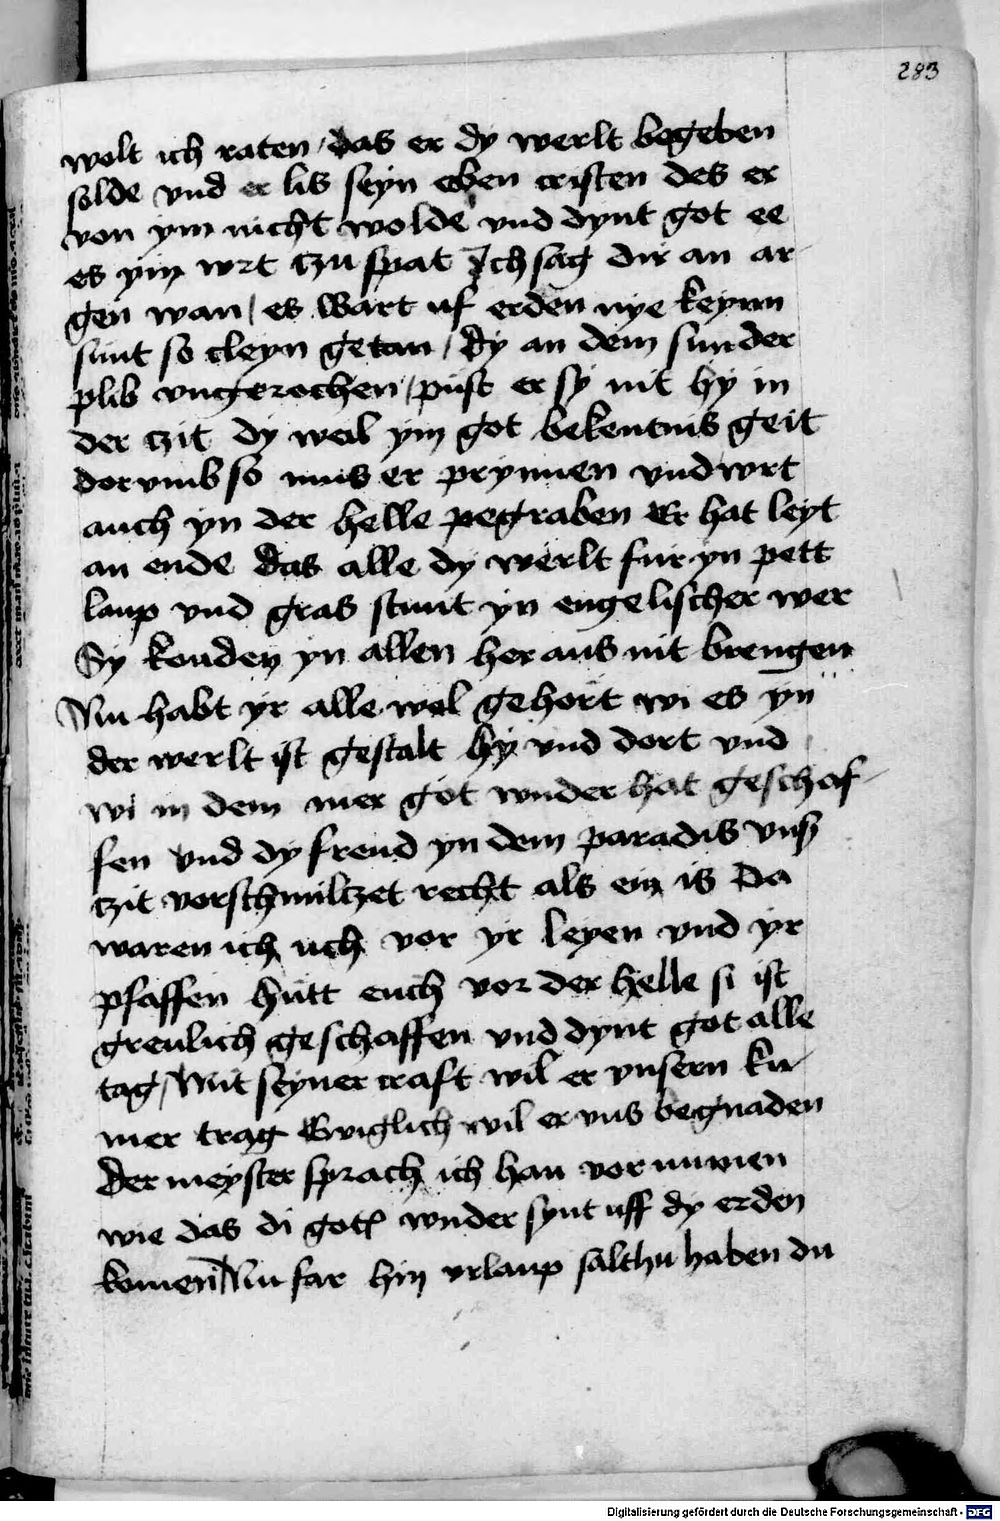 283
wolt ich raten / das er dy werlt begeben
solde vnd er lis seyn eben cristen des er
von ym nicht wolde vnd dynt got ee
es ym wrt tzu spat Ich sag dir an ar-
gen wan / es wart uf erden nye keynn
sunt so cleyn getan / dy an dem sunder
plib vngerochen / pust er sy nit hy in
der tzit dy weil ym got bekentnis geit
dorvmb so mus er prynnen vnd wrt
auch yn der helle pegraben Er hat leyt
an ende das alle dy werlt fur yn pett
laup vnd gras stunt yn engelischer wer
Sy konden yn allen her aus nit brengen
Nu habt yr alle wol gehort wi es yn
der werlt ist gestalt hy vnd dort vnd
wi in dem mer got wnder hat geschaf-
fen vnd dy freud yn dem paradis vnß
tzit vorschmiltzet recht als ein is Do
waren ich uch vor yr leyen vnd yr
pfaffen hutt euch vor der helle si ist
greulich geschaffen vnd dynt got alle
tag / Mit seyner craft wil er vnsern ku-
mer trag Ewiglich wil er vns begnaden
Der meyster sprach ich han vornumen
wie das di gotz wnder synt uff dy erden
komen Nu far hin vrlaup salthu haben du
Digitalisierung gefördert durch die Deutsche Forschungsgemeinschaft - DFG